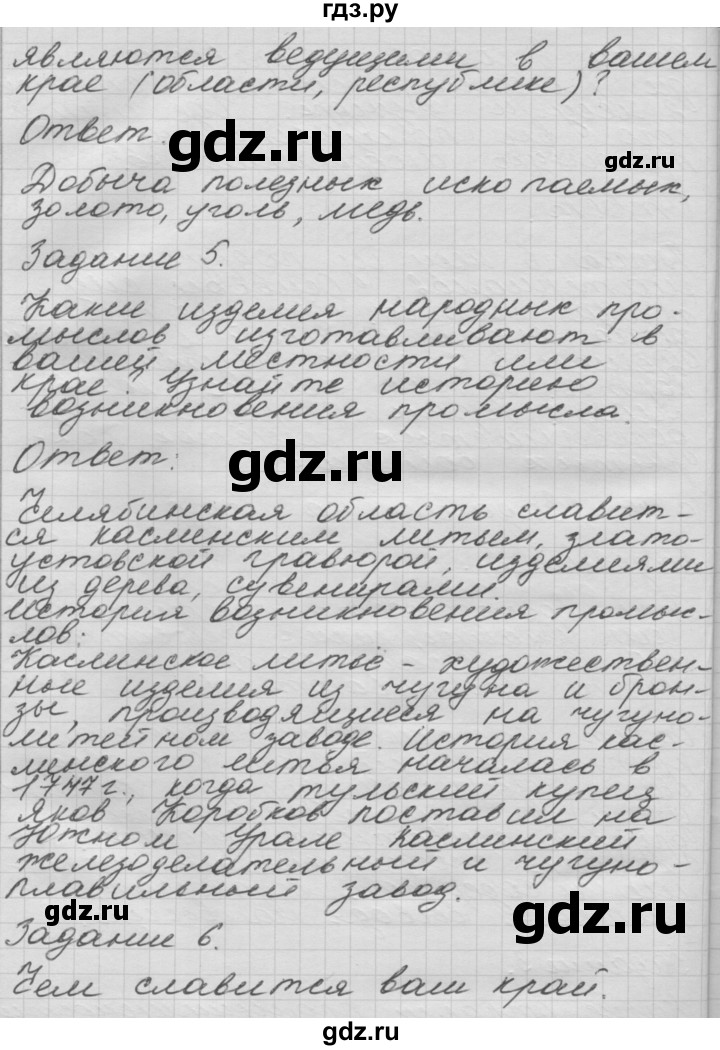 гдз.ру
являются ведущими в вашем
крае (области, республике)?
Ответ.
gdz.ru
gdz.ru
Добыча полезных ископаемых,
золото, уголь, медь.
Задание 5.
Какие изделия народных про-
мыслов изготавливают в
вашей местности или
крае? Узнайте историю
возникновения промысла.
Ответ:
gdz.ru
Челябинская область славит-
ся каслинским литьем, злато-
устовской гравюрой, изделиями
из дерева, сувенирами.
История возникновения промыс-
лов:
Каслинское литьё - художествен-
ные изделия из чугуна и брон-
зы, производящиеся на чугуно-
литейном заводе. История кас-
линского литья началась в
1747г., когда тульский купец
Яков Коробков поставил на
Южном Урале Каслинский
железоделательный и чугуно-
плавильный завод.
gdz.ru
gdz.ru
Задание 6.
Чем славится ваш край.
gdz.ru